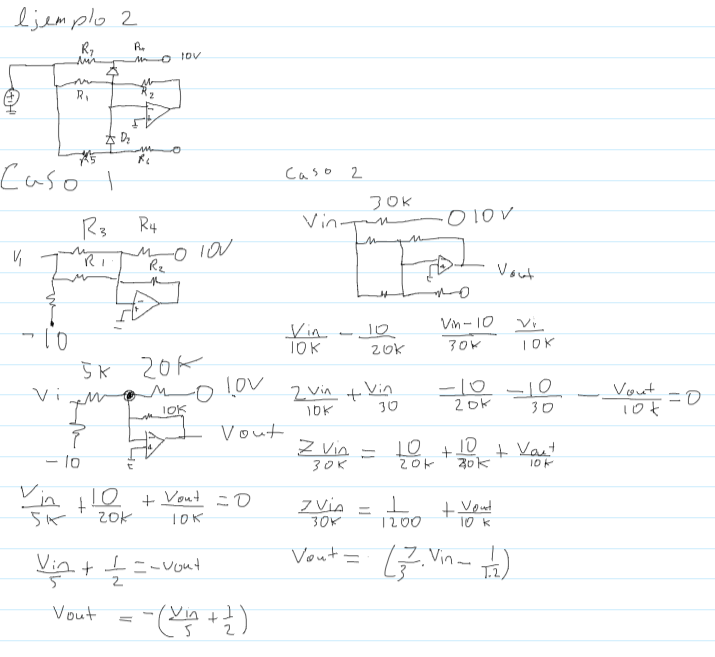 Ejemplo 2
R7 R4 10V
R1 R2
D2
R5 R6
Caso 1
R3 R4
Vi R1 R2 10V
-10
5K 20K
Vi 10K 10V
Vout
-10
Vin/5K + 10/20K + Vout/10K = 0
Vin/5 + 1/2 = -Vout
Vout = -(Vin/5 + 1/2)
Caso 2
30K
Vin 10V
Vout
Vin/10K - 10/20K Vin-10/30K Vi/10K
2Vin/10K + Vin/30 -10/20K -10/30 - Vout/10K = 0
7Vin/30K = 10/20K + 10/30K + Vout/10K
7Vin/30K = 1/1200 + Vout/10K
Vout = (7/3 · Vin - 1/1.2)